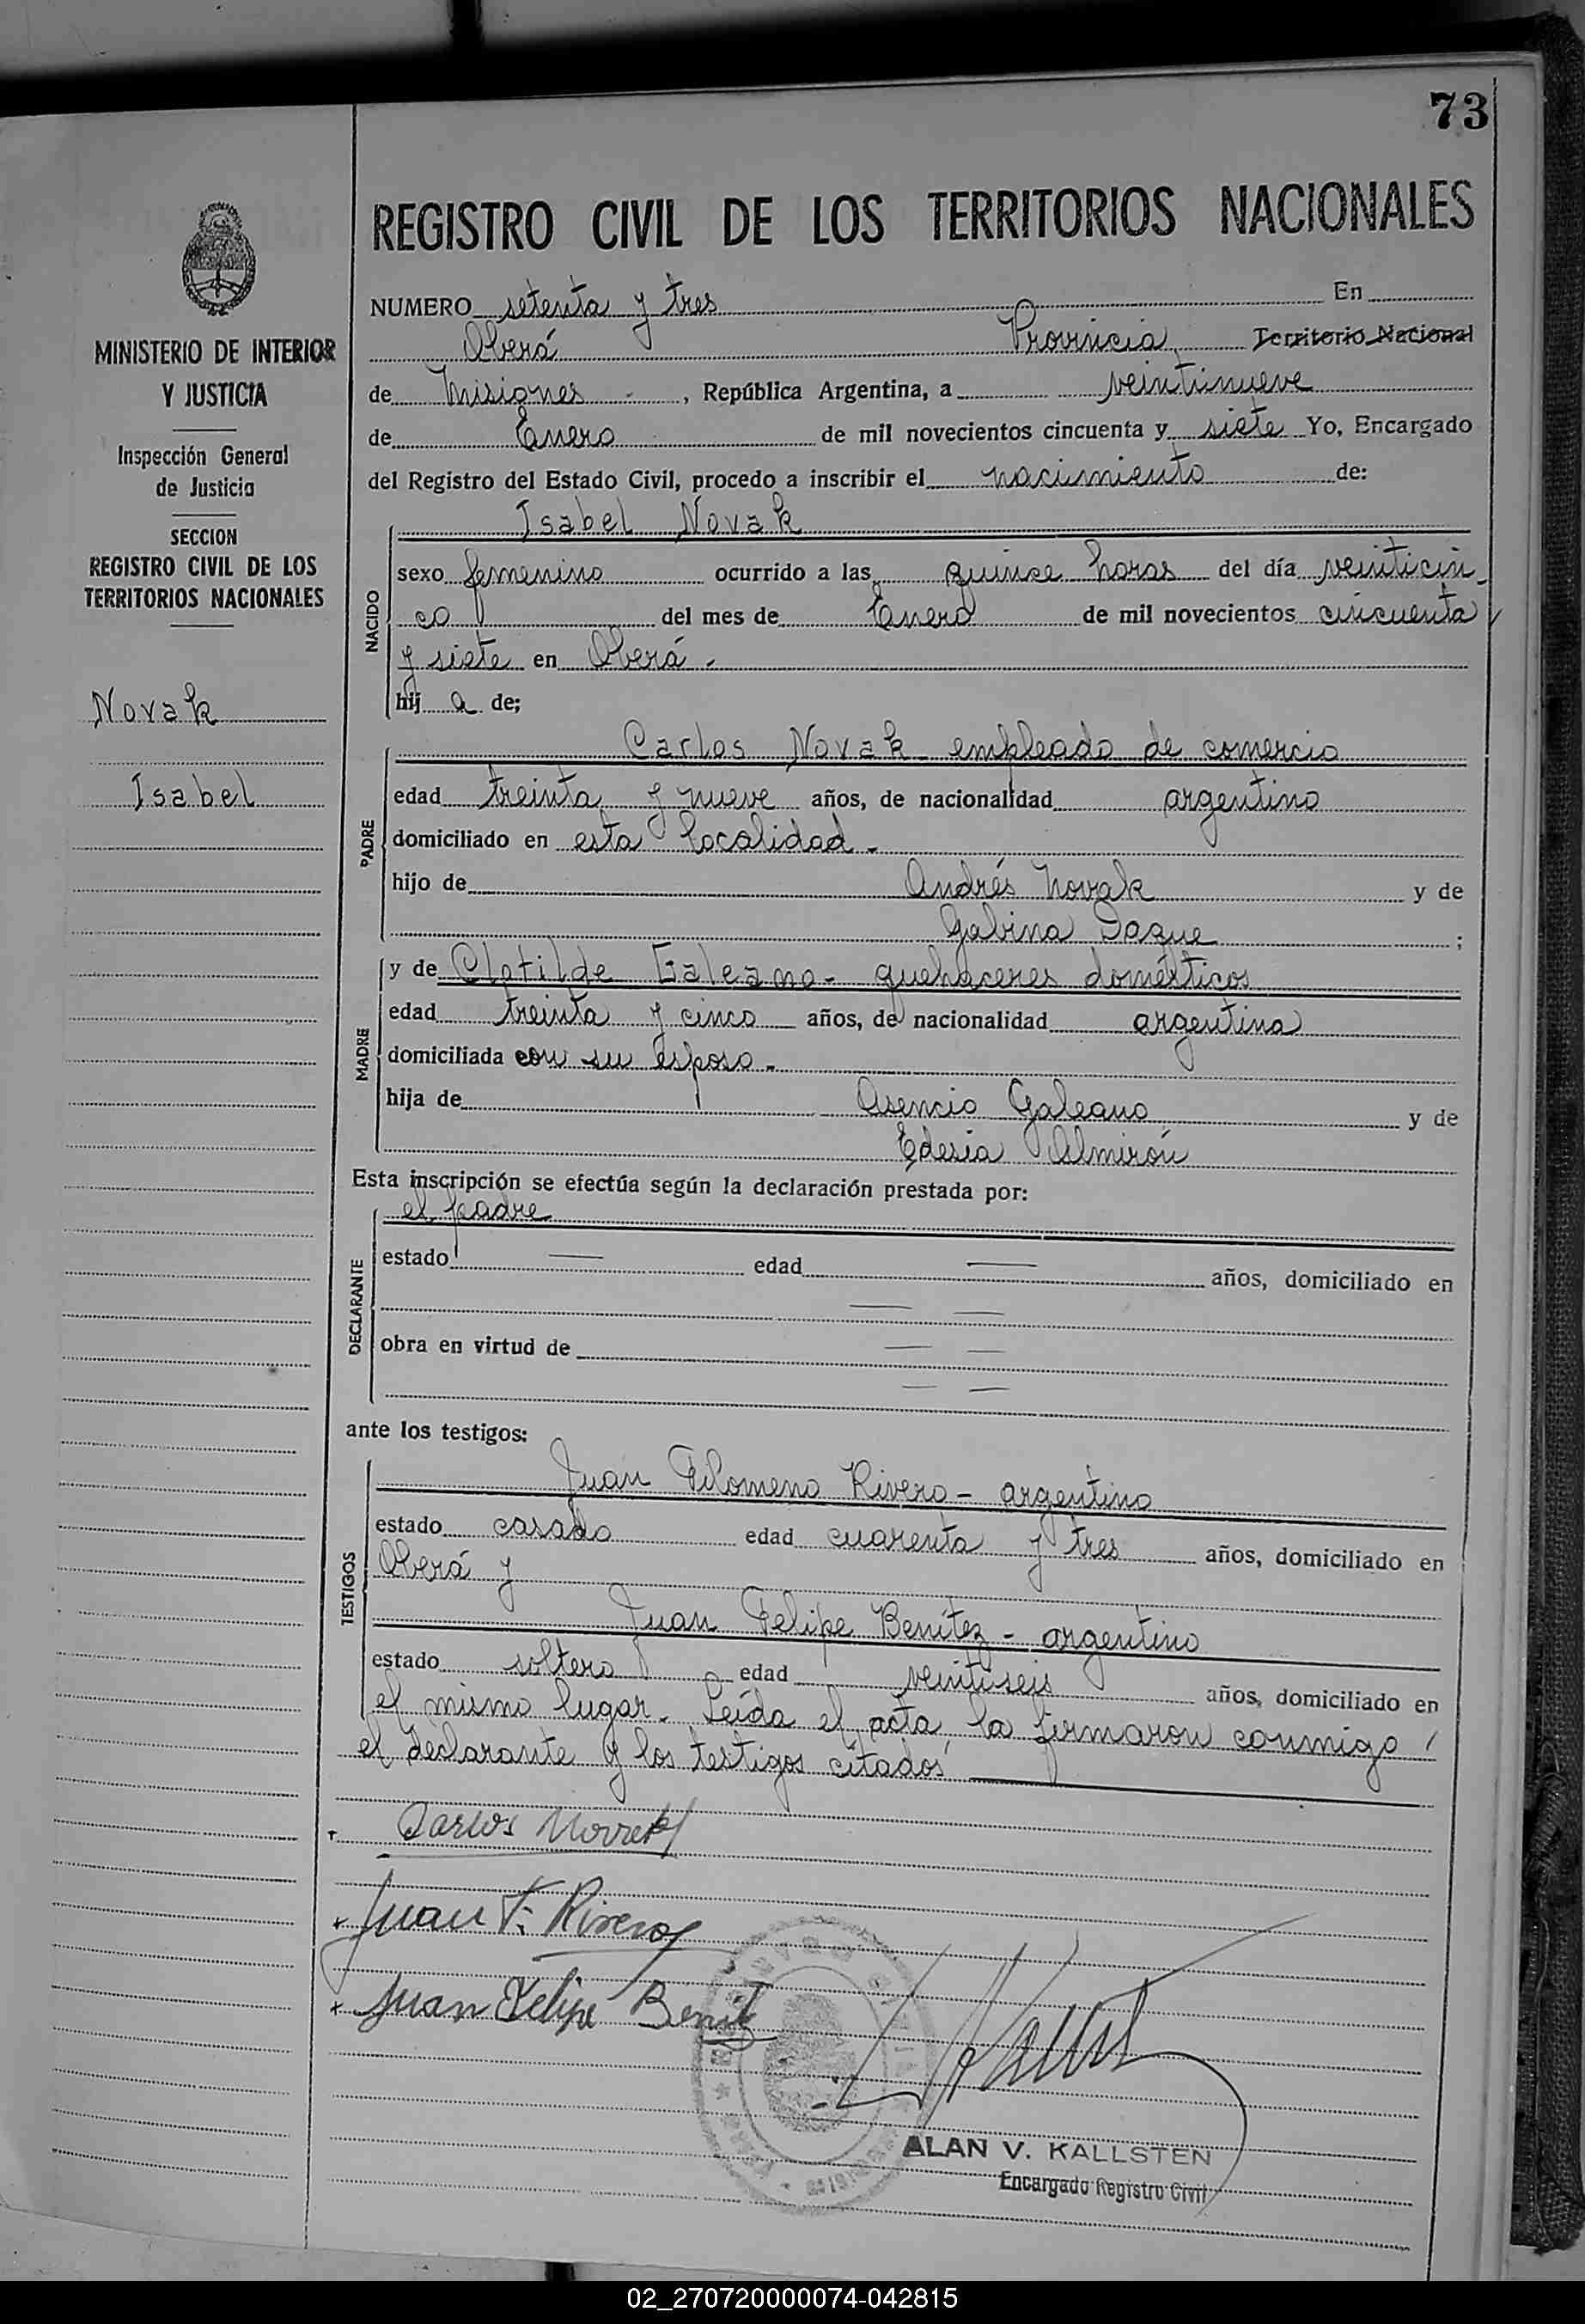 73
REGISTRO CIVIL DE LOS TERRITORIOS NACIONALES
MINISTERIO DE INTERIOR
Y JUSTICIA
Inspección General
de Justicia
SECCION
REGISTRO CIVIL DE LOS
TERRITORIOS NACIONALES
Novak
Isabel
NUMERO setenta y tres En
Oberá Provincia Territorio Nacional
de Misiones, República Argentina, a veintinueve
de Enero de mil novecientos cincuenta y siete Yo, Encargado
del Registro del Estado Civil, procedo a inscribir el nacimiento de:
NACIDO
Isabel Novak
sexo femenino ocurrido a las quince horas del día veinticin-
co del mes de Enero de mil novecientos cincuenta
y siete en Oberá.
hij a de;
PADRE
Carlos Novak empleado de comercio
edad treinta y nueve años, de nacionalidad argentino
domiciliado en esta localidad.
hijo de Andrés Novak y de
Gabina ;
MADRE
y de Clotilde Galeano - quehaceres domésticos
edad treinta y cinco años, de nacionalidad argentina
domiciliada con su esposo.
hija de Asencio Galeano y de
Edesia Almirón
Esta inscripción se efectúa según la declaración prestada por:
DECLARANTE
el padre
estado — edad — años, domiciliado en
— —
obra en virtud de — —
— —
ante los testigos:
TESTIGOS
Juan Filomeno Rivero - argentino
estado casado edad cuarenta y tres años, domiciliado en
Oberá y
Juan Felipe Benítez - argentino
estado soltero edad veintiseis años, domiciliado en
el mismo lugar. Leída el acta, la firmaron conmigo
el declarante y los testigos citados
Carlos
Juan F. Rivero
Juan Felipe
ALAN V. KALLSTEN
Encargado Registro Civil
02_270720000074-042815